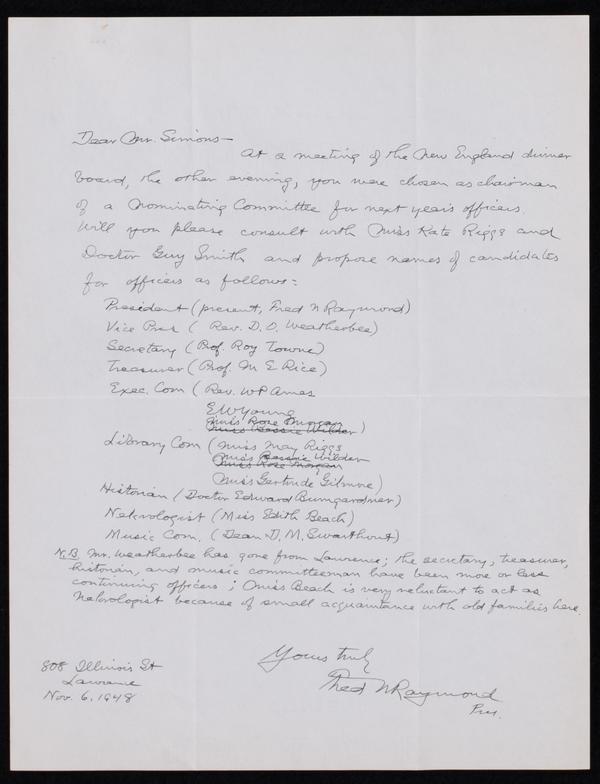 Dear Mr. Simons—
At a meeting of the New England dinner
board, the other evening, you were chosen as chairman
of a Nominating Committee for next year's officers.
Will you please consult with Miss Kate Riggs and
Doctor Guy Smith and propose names of candidates
for officers as follows:
President (present, Fred N Raymond)
Vice Pres ( Rev. D. O. Weatherbee)
Secretary (Prof. Roy Towne)
Treasurer (Prof. M E Rice)
Exec. Com ( Rev. W P Ames
E W Young
Miss Rose Morgan
Miss Bessie Wilder)
Library Com (Miss May Riggs
Miss Bessie Wilder
Miss Rose Morgan
Miss Gertrude Gilmore)
Historian (Doctor Edward Bumgardner)
Nekrologist (Miss Edith Beach)
Music Com. (Dean D. M. Swarthout)
N.B. Mr. Weatherbee has gone from Lawrence; the secretary, treasurer,
historian, and music committeeman have been more or less
continuing officers; Miss Beach is very reluctant to act as
Nekrologist because of small acquaintance with old families here.
Yours truly
Fred N Raymond
Pres.
808 Illinois St
Lawrence
Nov. 6, 1948